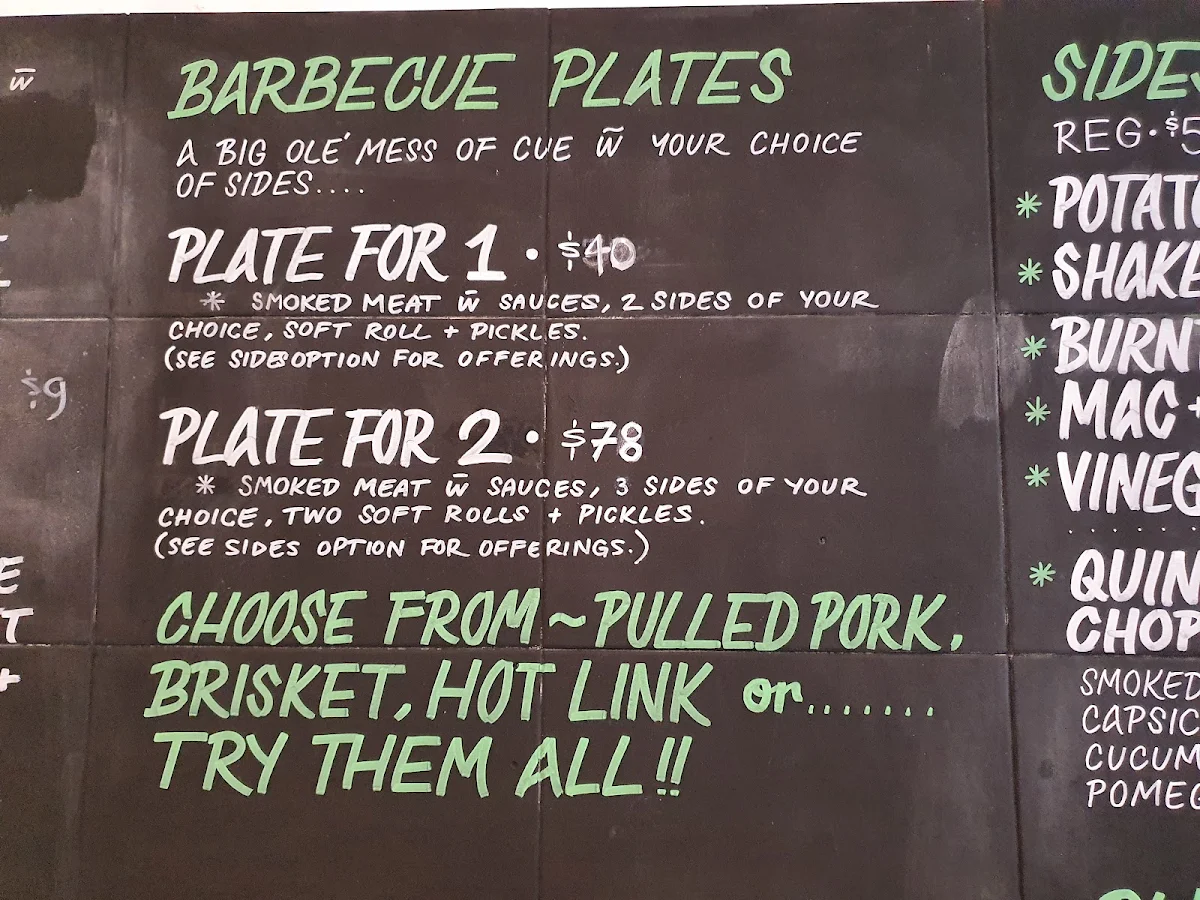 w̄
BARBECUE PLATES
A BIG OLE' MESS OF CUE w̄ YOUR CHOICE
OF SIDES....
PLATE FOR 1 • $40
* SMOKED MEAT w̄ SAUCES, 2 SIDES OF YOUR
CHOICE, SOFT ROLL + PICKLES.
(SEE SIDES OPTION FOR OFFERINGS.)
$9
PLATE FOR 2 • $78
* SMOKED MEAT w̄ SAUCES, 3 SIDES OF YOUR
CHOICE, TWO SOFT ROLLS + PICKLES.
(SEE SIDES OPTION FOR OFFERINGS.)
CHOOSE FROM ~ PULLED PORK,
BRISKET, HOT LINK or.......
TRY THEM ALL!!
SIDES
REG • $5
* POTAT
SHAKE
* BURN
* MAC +
* VINEG
* QUIN
CHOP
SMOKED
CAPSIC
CUCUM
POMEG